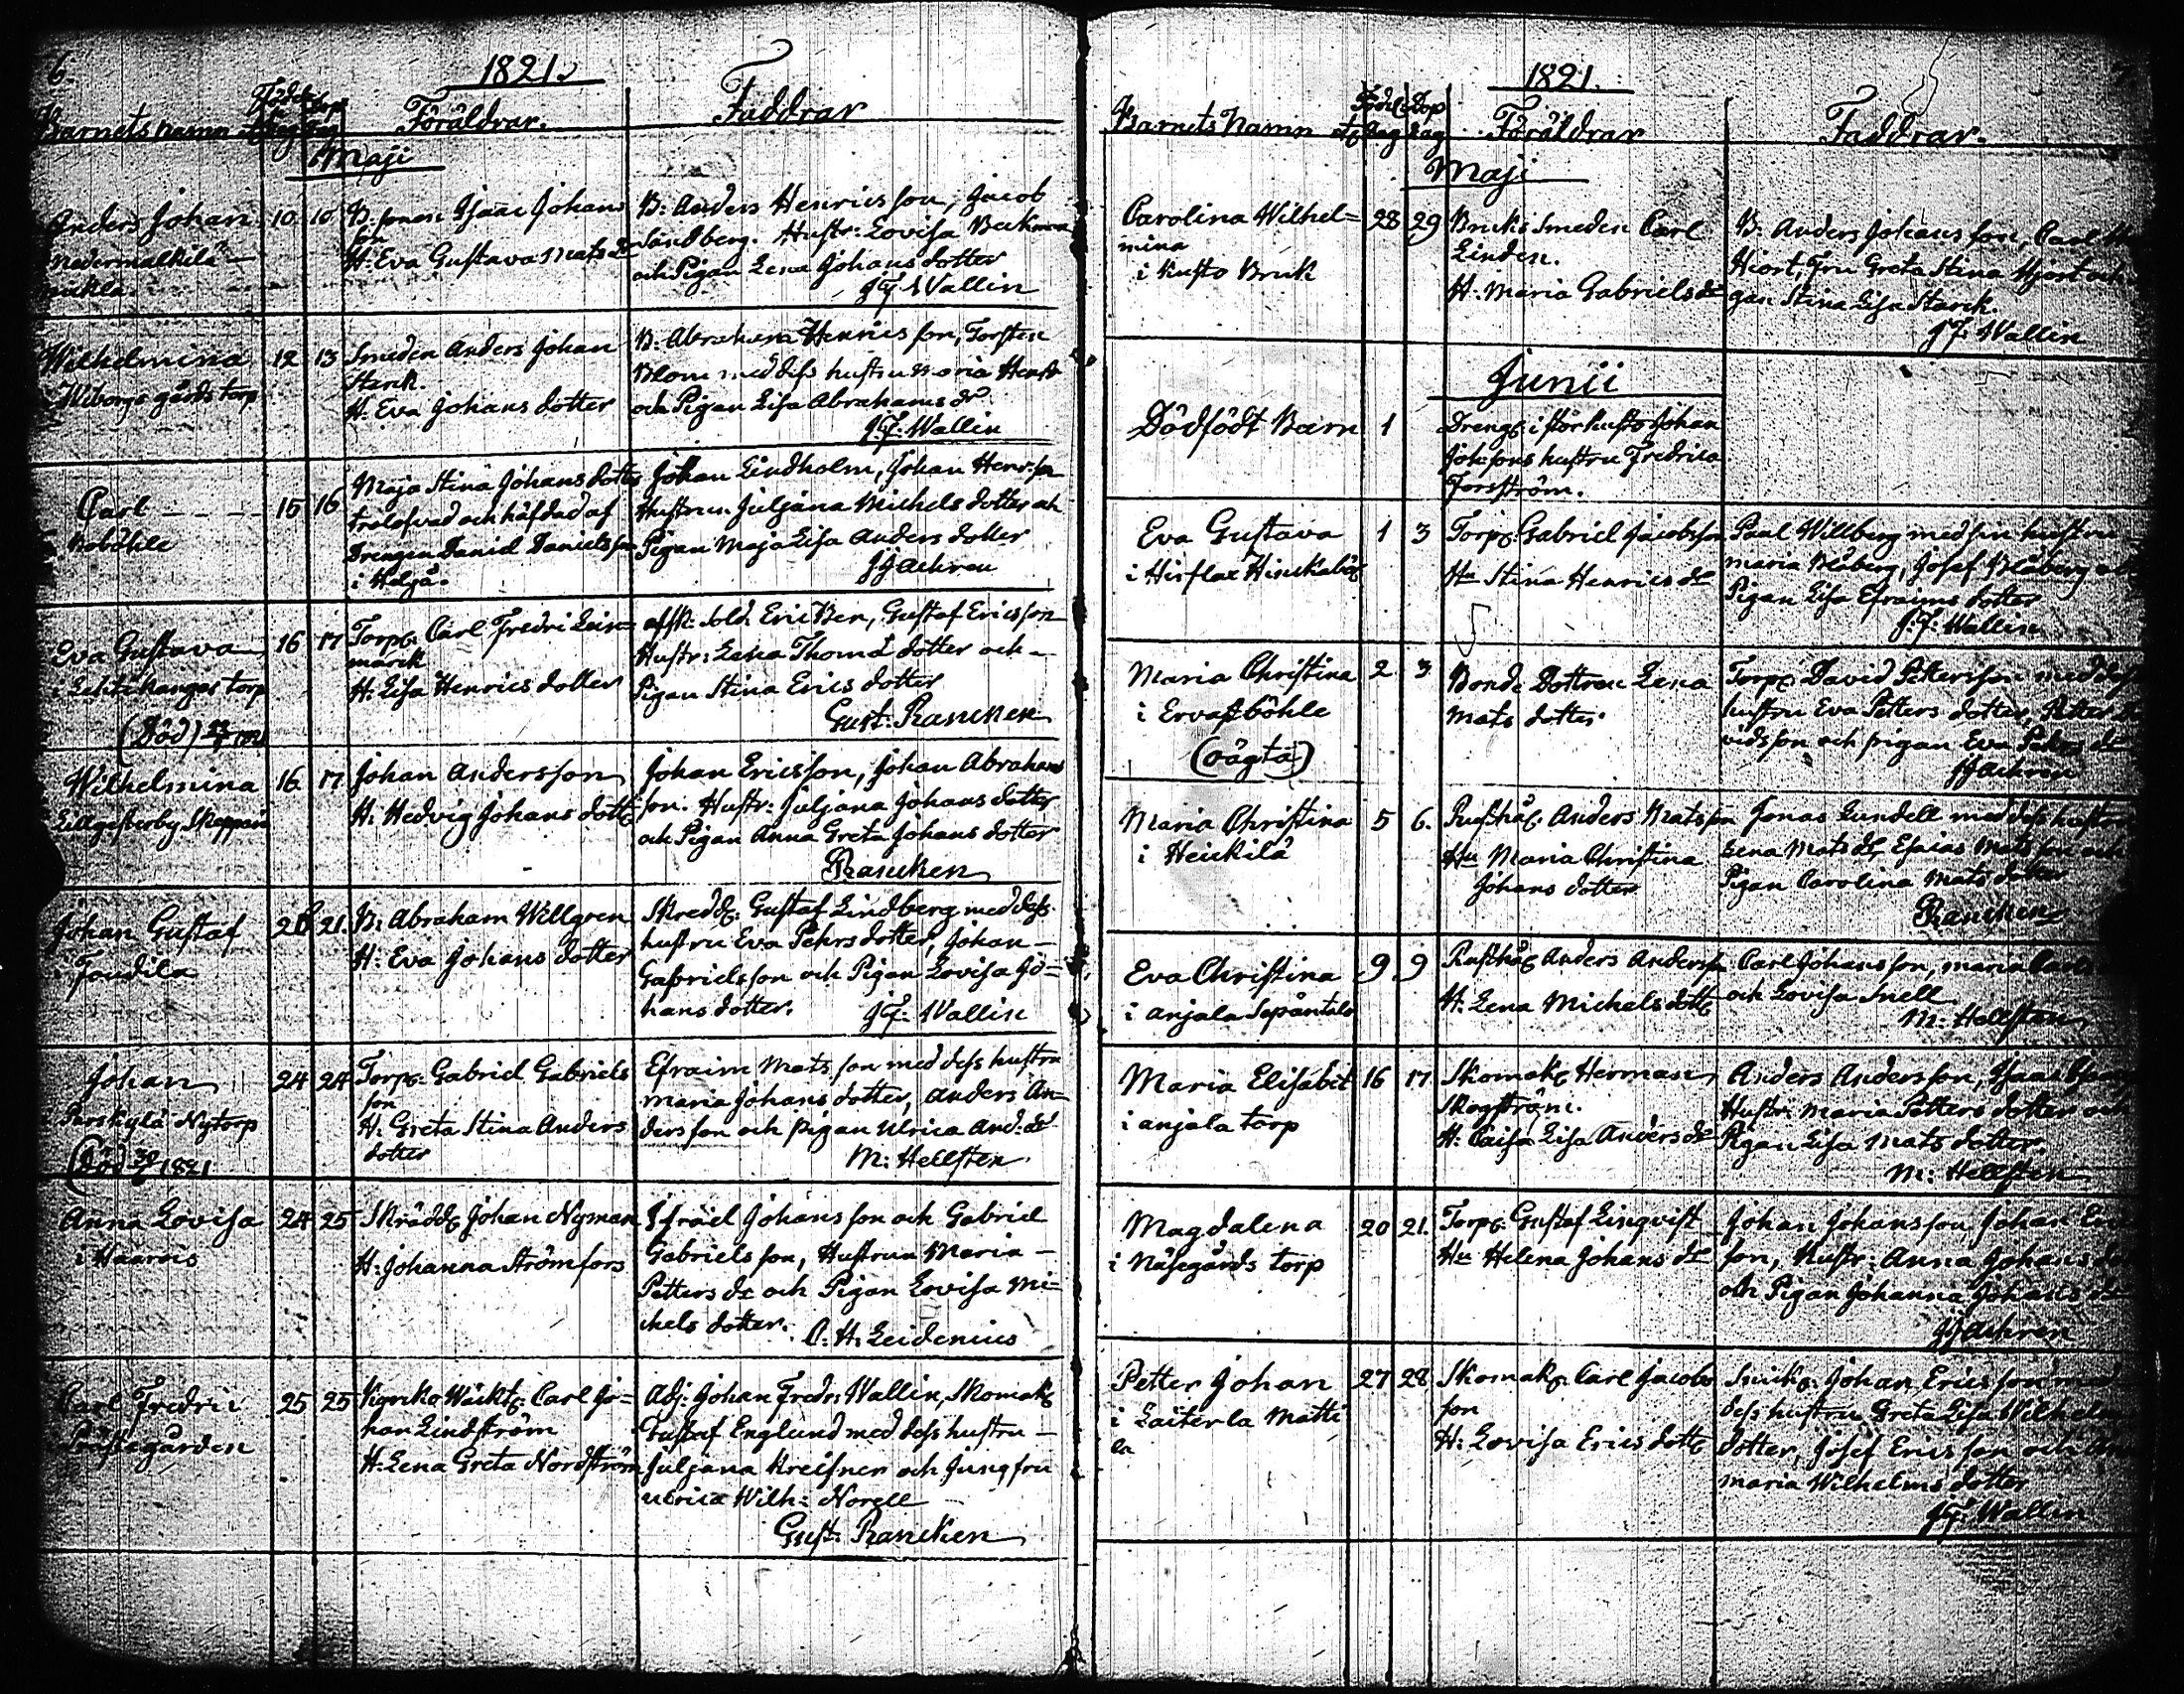 6.
1821.
Barnets namn
Födelse Dag
Dop dag
Föräldrar.
Faddrar
Maji
Anders Johan
Nedermalkilä
10 10
B. sonen Isaac Johans
son
H. Eva Gustava Mats dr
B: Anders Henricsson, Jacob
Sandberg. Hustr: Lovisa Beckman
och Pigan Lena Johans dotter
J F Wallin
Wilhelmina
Wiborgs gårds torp
12 13
Smeden Anders Johan
Starck.
H. Eva Johans dotter
B. Abraham Henricsson, Torsten
Blom med dess hustru Maria Henr dr
och Pigan Lisa Abrahams dr
J. F. Wallin
Carl
Boböhle
15 16
Maja Stina Johans dotter
trolofvad och häfdad af
Drengen Daniel Danielsson
i Heljä.
Johan Lindholm, Johan Henr.son
Hustrun Juljana Michels dotter och
Pigan Maja Lisa Anders dotter
J J achren
Eva Gustava
i Lehtikangas torp
(Död)
16 17
Torp: Carl Fredric Lein=
marck
H. Lisa Henrics dotter
afsk. Sold. Eric Ben, Gustaf Ericsson
Hustr: Lena Thomas dotter och
Pigan Stina Erics dotter
Gust: Rancken
Wilhelmina
Lillgesterby Skeppari
16 17
Johan Andersson
H. Hedvig Johans dottr
Johan Ericsson, Johan Abrahams
son. Hustr: Juljana Johans dotter
och Pigan Anna Greta Johans dotter
Rancken
Johan Gustaf
i Joudila
20 21.
B: Abraham Willgren
H: Eva Johans dotter
Skredd: Gustaf Lindberg med dess
hustru Eva Pehrs dotter, Johan
Gabrielsson och Pigan Lovisa Jo=
hans dotter. J F: Wallin
Johan
Parskylä Nytorp
(Död 1821
24 24
Torp: Gabriel Gabriels
son
H: Greta Stina Anders
dotter
Efraim Matsson med dess hustru
Maria Johans dotter, Anders An=
dersson och pigan Ulrica And: dr
M: Hellsten
Anna Lovisa
i Haarois
24 25
Skrädd: Johan Nyman
H: Johanna Strömfors
Israel Johansson och Gabriel
Gabrielsson, Hustrun Maria
Petters dr och Pigan Lovisa Mi=
chels dotter. C. H. Leidenius
Carl Fredric
Prästegården
25 25
Carl Jo=
han Lindström
H: Lena Greta Nordström
Adj: Johan Fredr: Wallin, Skomak:
Gustaf Englund med dess hustru
Juljana Kreisner och Jungfru
Ulrica Wilh: Norell
Gust: Rancken
1821.
Barnets Namn
Födelse Dag
Dop Dag
Föräldrar
Faddrar.
Maji
Carolina Wilhel=
mina
i Kusto Bruk
28 29
Bruks Smeden Carl
Linden.
H: Maria Gabriels dr
B: Anders Johansson, Carl
Hiort, Fru Greta Stina Hjort och
gan Stina Lisa Starck.
J F Wallin
Junii
Dödfödt Barn
1
Dreng: i Storkusto Johan
Joh:sons hustru Fredrica
Forsström.
Eva Gustava
1 3
Torp: Gabriel Jacobsson
Hu Stina Henrics dr
Paul Willberg med sin hustru
Maria Blåberg, Josef Blåberg
Pigan Lisa Efraims dotter
J. F. Wallin
Maria Christina
i Ervastböhle
(oägta)
2 3
Bonde Dottren Lena
Mats dotter
Torp: David Pettersson med dess
hustru Eva Petters dotter, Petter Da
vidsson och pigan Eva Pehrs dr
J J achren
Maria Christina
i Heickilä
5 6.
Rusthå: Anders Matsson
Hu Maria Christina
Johans dotter
Jonas Lundell med dess hustru
Lena Mats dr, Esaias Matsson och
Pigan Carolina Mats dotter
Rancken
Eva Christina
i anjala Sepäntalo
9 9
Rusthå: Anders Andersson
H: Lena Michels dottr
Carl Johansson, Maria
och Lovisa Snell
M: Hellsten
Maria Elisabet
i anjala torp
16 17
Skomak: Herman
Skogström.
H. Caisa Lisa Anders dr
Anders Andersson, Isaac
Hustr: Maria Petters dotter och
Pigan Lisa Mats dotter.
M: Hellsten
Magdalena
i Näsegårds torp
20 21.
Torp: Gustaf Linqvist
Hu Helena Johans dr
Johan Johansson, Johan
son, Hustr: Anna Johans
och Pigan Johanna Johans dr
J J achren
Petter Johan
i Laiterla Matti
la
27 28
Skomak: Carl Jacobs
son
H: Lovisa Erics dottr
Johan Ericsson med
dess hustru Greta Lisa Wilhelms
dotter, Josef Ericsson och
Maria Wilhelms dotter
J F: Wallin